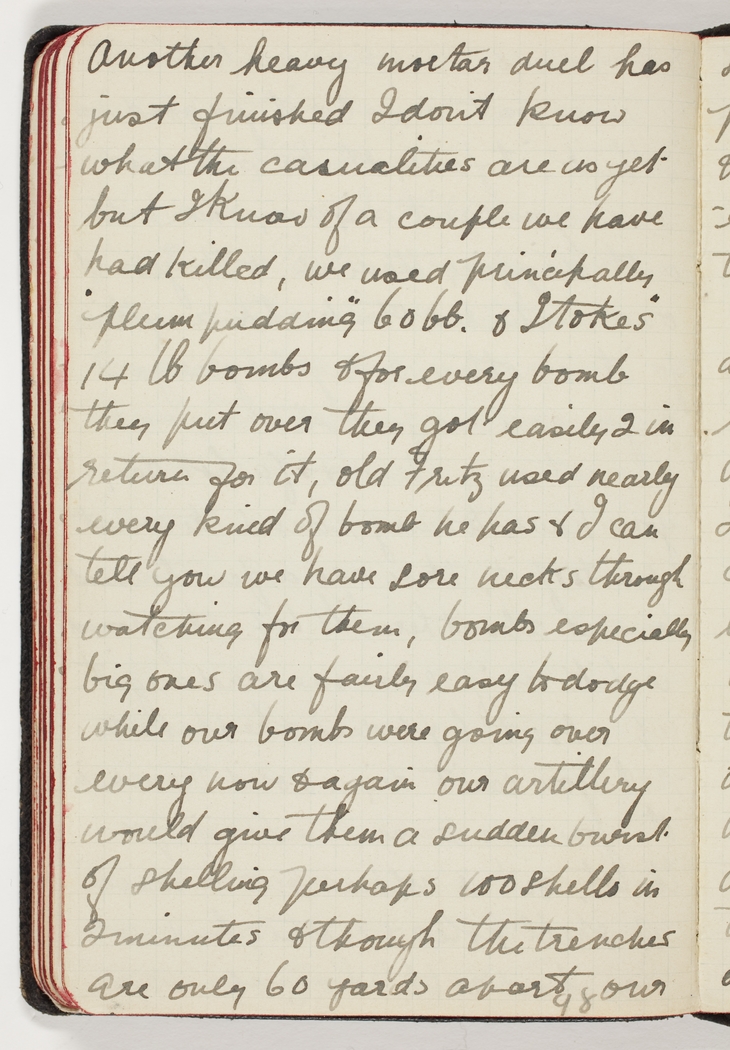 Another heavy mortar duel has
just finished I dont know
what the casualities are as yet
but I Know of a couple we have
had killed, we used principally
"plum pudding" 60 lb. & Stokes"
14 lb bombs & for every bomb
they put over they got easily 2 in
return for it, old Fritz used nearly
every kind of bomb he has & I can
tell you we have sore necks through
watching for them, bombs especially
big ones are fairly easy to dodge
while our bombs were going over
every now & again our artillery
would give them a sudden burst
of shelling perhaps 100 shells in
2 minutes & though the trenches
are only 60 yards apart our
98